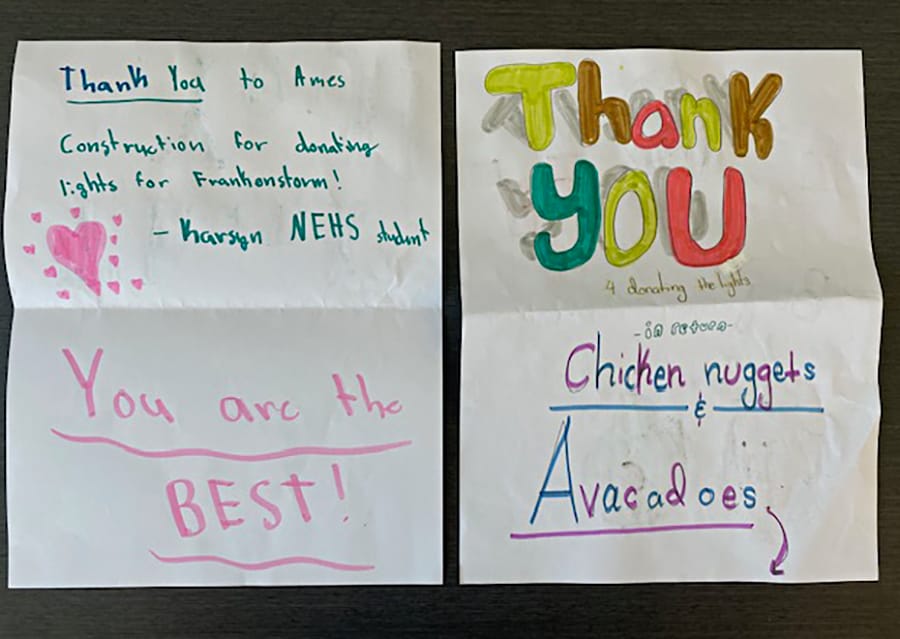 Thank You to Ames
Construction for donating
lights for Frankenstorm!
- Karsyn NEHS student
You are the
BEST!
Thank
You
4 donating the lights
-in return-
Chicken nuggets
&
Avacadoes